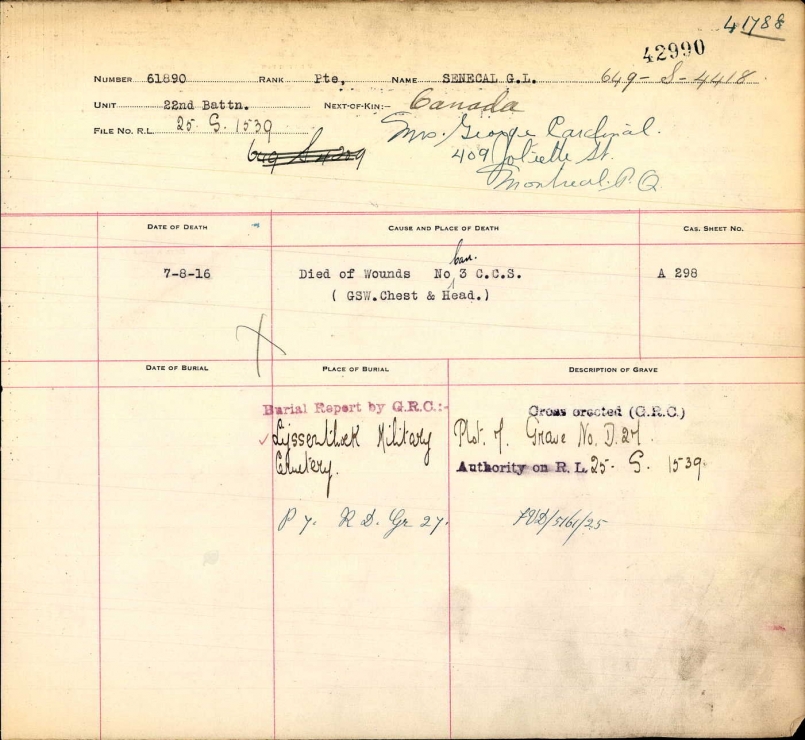 41788
42990
NUMBER 61890 RANK Pte, NAME SENECAL G.L. 649-S-4418
UNIT 22nd Battn. NEXT-OF-KIN:- Canada
FILE No. R.L. 25. S. 1539 Mrs. George Cardinal.
409 Joliette St.
Montreal. P.Q.
DATE OF DEATH CAUSE AND PLACE OF DEATH CAS. SHEET NO.
Can.
7-8-16 Died of Wounds No 3 C.C.S. A 298
( GSW.Chest & Head.)
DATE OF BURIAL PLACE OF BURIAL DESCRIPTION OF GRAVE
Burial Report by G.R.C.:- Cross erected (G.R.C.)
Lijssenthoek Military Plot. 7. Grave No. D. 27.
Cemetery. Authority on R. L. 25. S. 1539
P 7. R D. Gr 27.